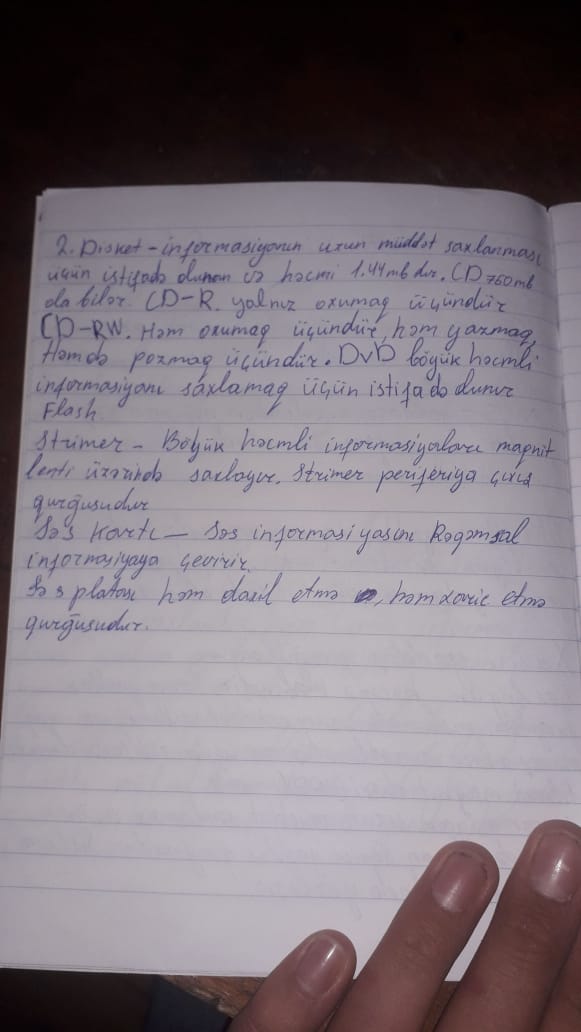 2. Disket - informasiyanın uzun müddət saxlanması
üçün istifadə olunan və həcmi 1.44mb dır. CD 760mb
ola bilər. CD-R. yalnız oxumaq üçündür
CD-RW. Həm oxumaq üçündür, həm yazmaq,
Həmdə pozmaq üçündür. DvD böyük həcmli
informasiyanı saxlamaq üçün istifadə olunur
Flash
Strimer - Böyük həcmli informasiyaları maqnit
lenti üzərində saxlayır. Strimer periferiya çıxış
qurğusudur
Səs Kartı - Səs informasiyasını Rəqəmsal
informasiyaya çevirir.
Səs platası həm daxil etmə, həm xaric etmə
qurğusudur.